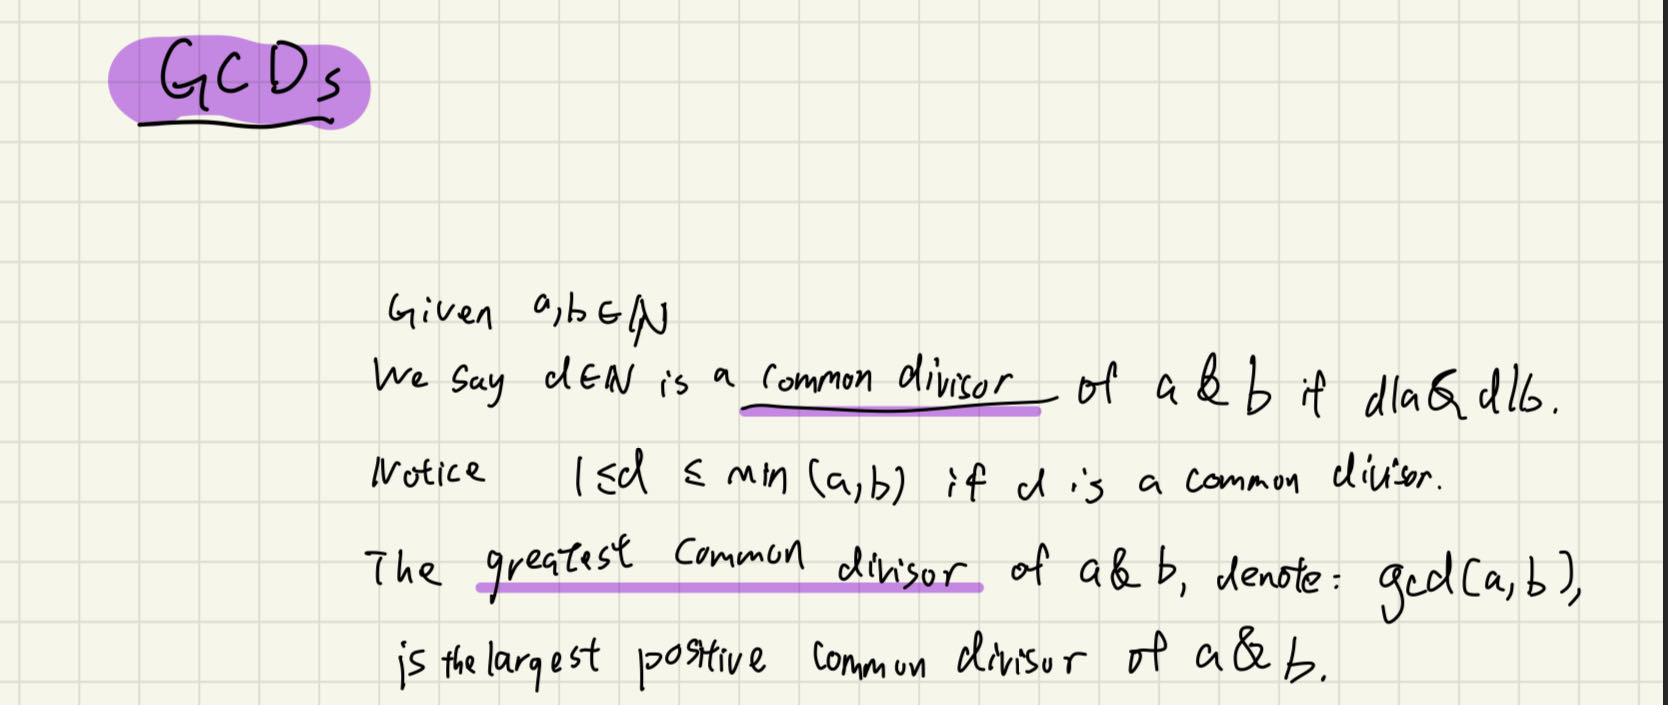 GCDs
Given a,b∈ℕ
We say d∈ℕ is a common divisor of a & b if d|a & d|b.
Notice 1≤d ≤ min (a,b) if d is a common divisor.
The greatest common divisor of a & b, denote: gcd(a,b),
is the largest positive common divisor of a & b.